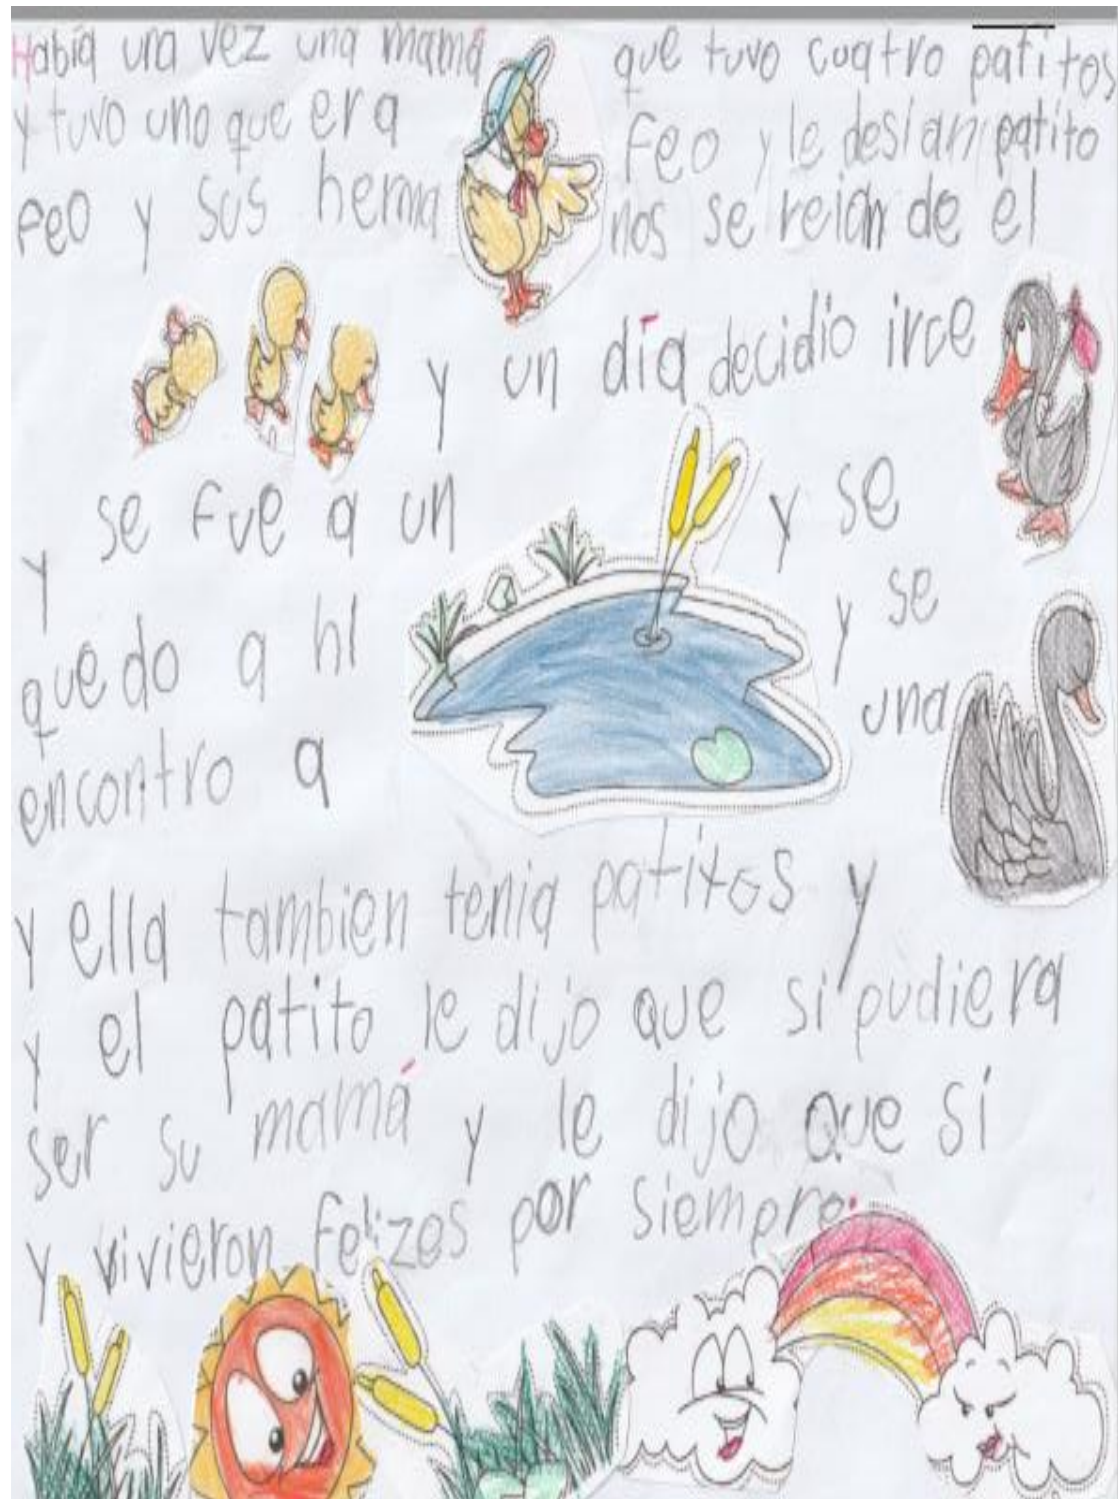 Había una vez una mamá que tuvo cuatro patitos
y tuvo uno que era feo y le desian patito
feo y sus herma nos se reian de el
y un día decidio irce
y se fue a un y se
quedo a hi y se
encontro a una
y ella tambien tenia patitos y
y el patito le dijo que si pudiera
ser su mamá y le dijo que si
y vivieron felizes por siempre.